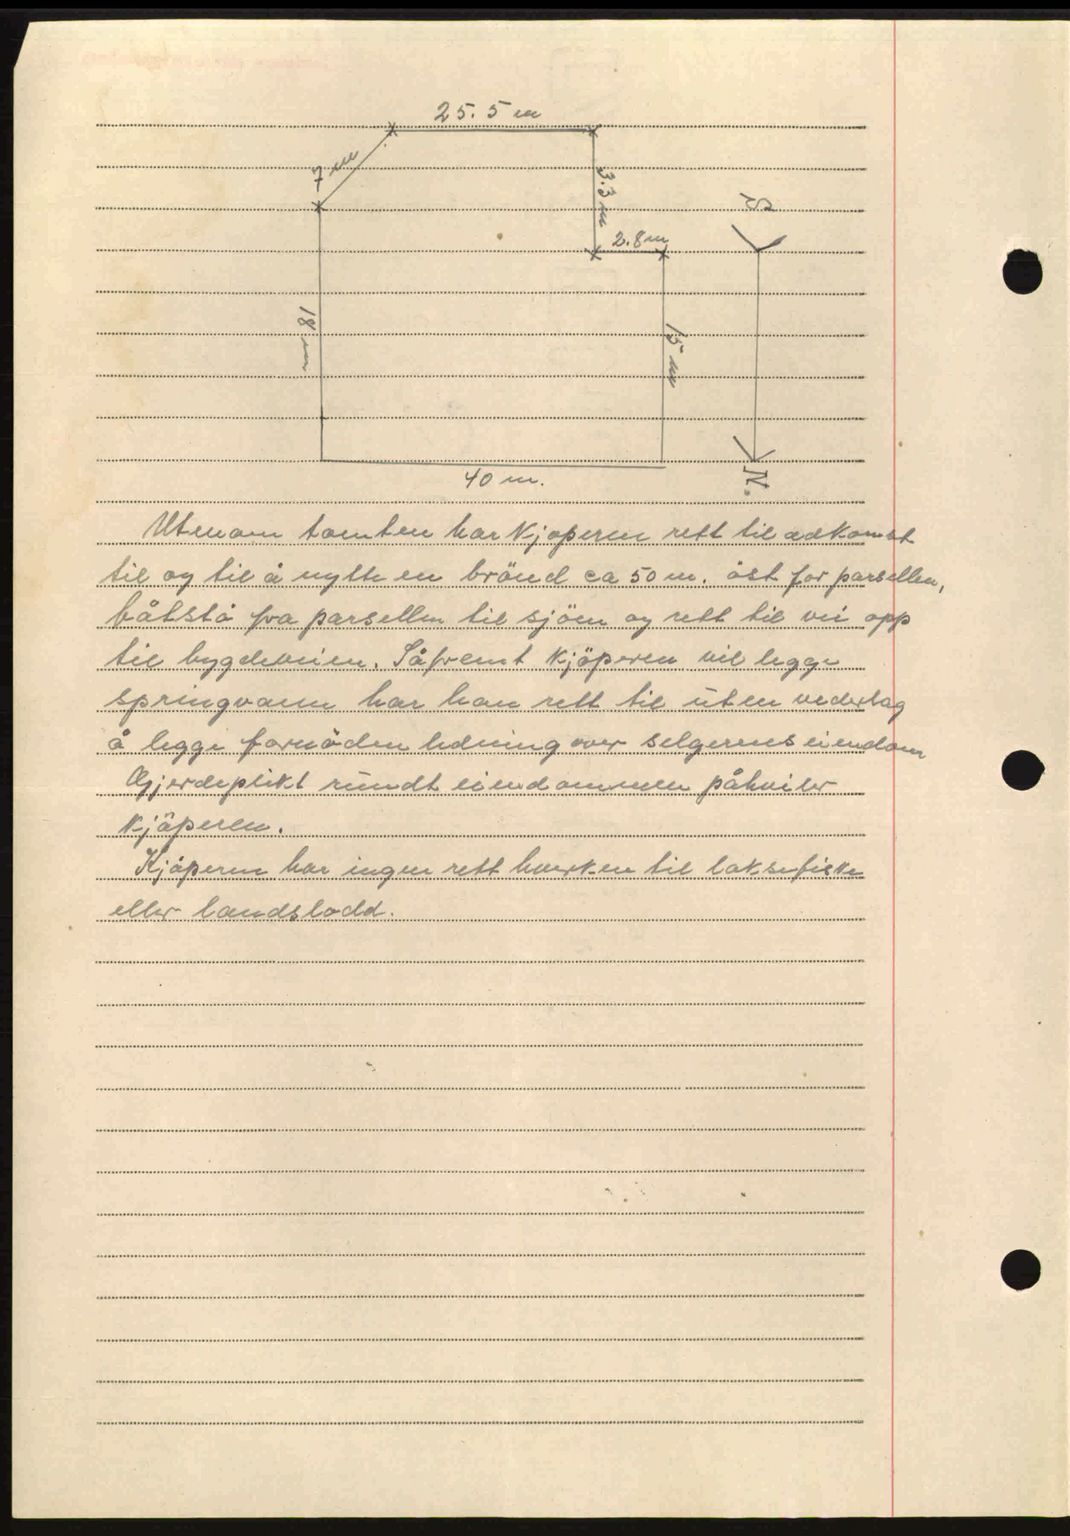 25.5 m
7 m
3.3 m
S
2.8 m
18 m
15 m
N.
40 m.
Utenom tomten har kjøperen rett til adkomst
til og til å nytte en brönd ca 50 m. öst for parsellen,
båtstö fra parsellen til sjöen og rett til vei opp
til bygdeveien. Såfremt kjöperen vil legge
springvann har han rett til uten vederlag
å legge fornöden ledning over selgerens eiendom
Gjerdeplikt rundt eiendommen påhviler
kjöperen.
Kjöperen har ingen rett hverken til laksefiske
eller landslodd.